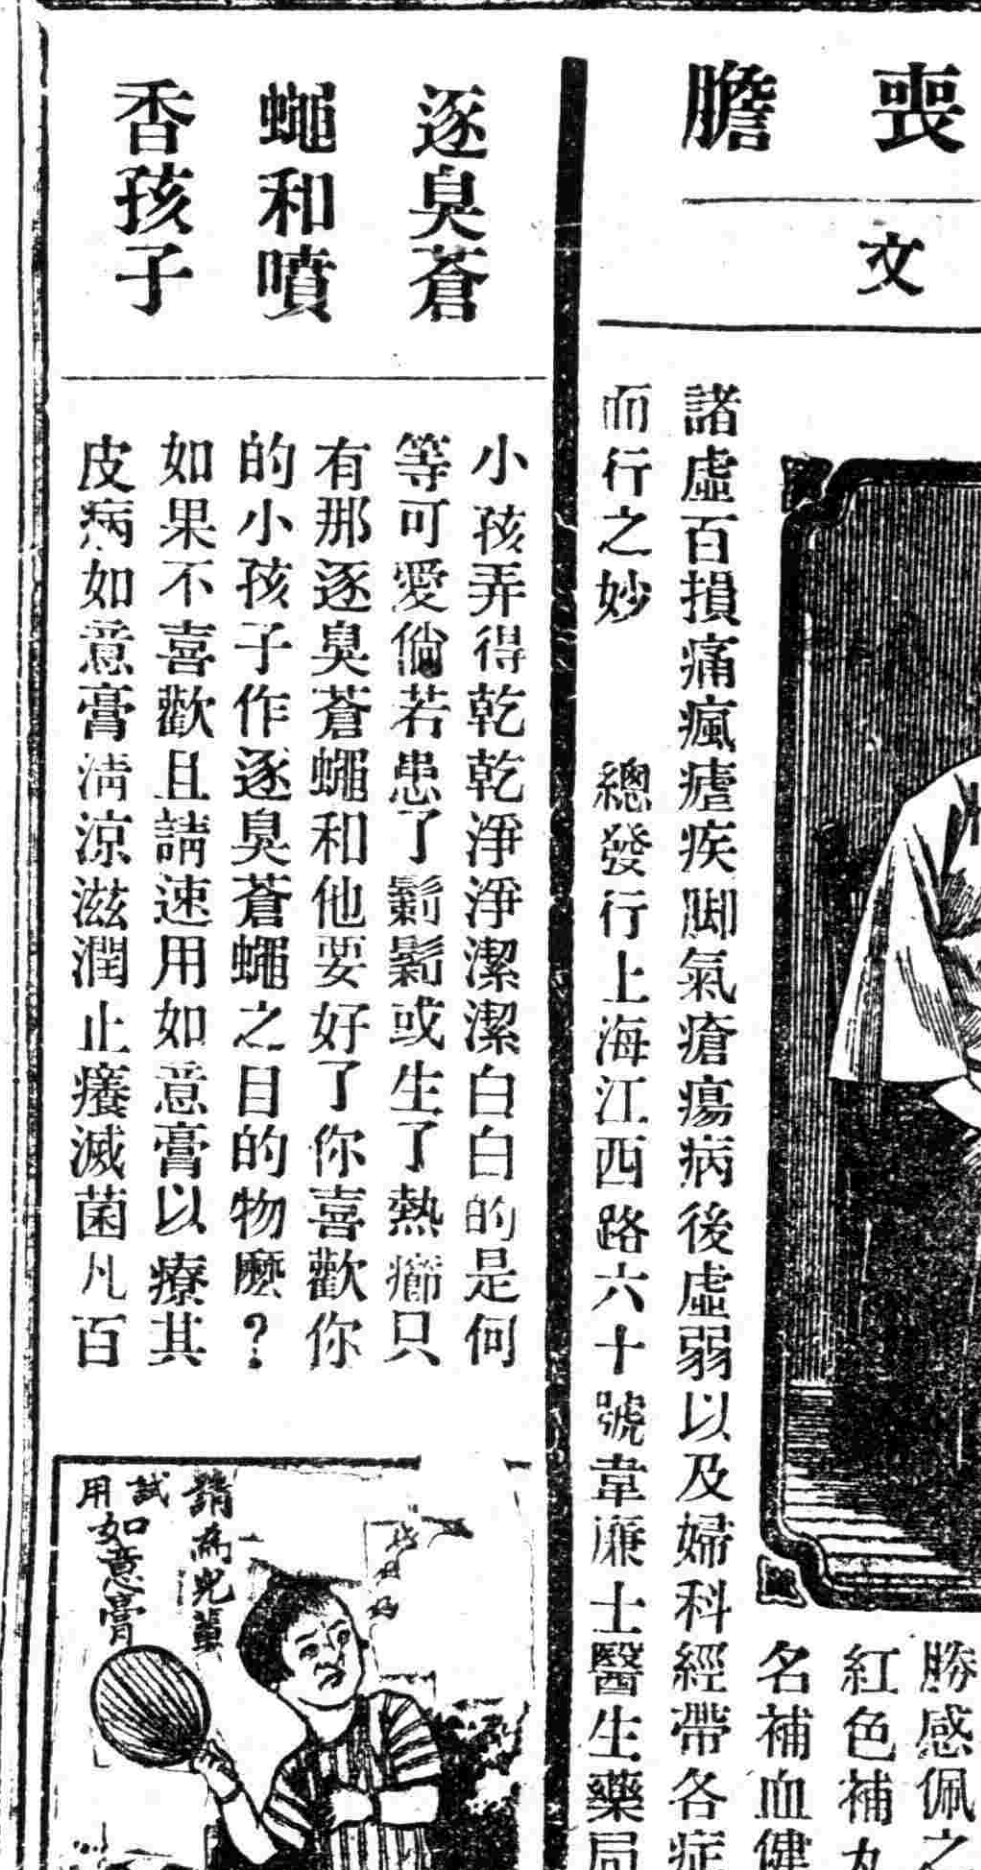 喪
膽
文
勝感佩之
紅色補丸
名補血健
諸虛百損痛瘋瘧疾脚氣瘡瘍病後虛弱以及婦科經帶各症
而行之妙 總發行上海江西路六十號韋廉士醫生藥局
逐臭蒼
蠅和噴
香孩子
小孩弄得乾乾淨淨潔潔白白的是何
等可愛倘若患了鬎鬁或生了熱癤只
有那逐臭蒼蠅和他要好了你喜歡你
的小孩子作逐臭蒼蠅之目的物麽?
如果不喜歡且請速用如意膏以療其
皮病如意膏淸涼滋潤止癢滅菌凡百
請爲兒輩
試用
如意膏